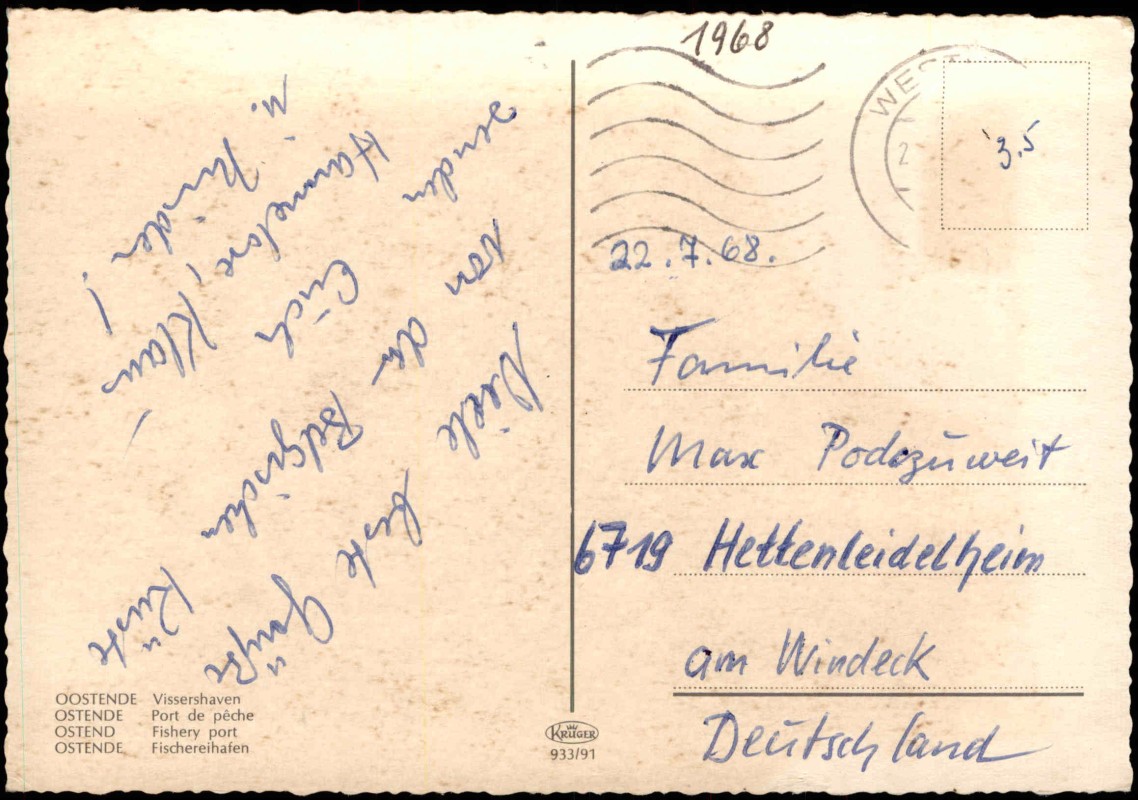 Viele beste Grüße
von der Belgischen Küste
senden Euch
Hannelore, Klaus
u. Kinder!
OOSTENDE Vissershaven
OSTENDE Port de pêche
OSTEND Fishery port
OSTENDE Fischereihafen
KRÜGER
933/91
1968
WEST
3.5
22.7.68.
Familie
Max Podszuweit
6719 Hettenleidelheim
am Windeck
Deutschland